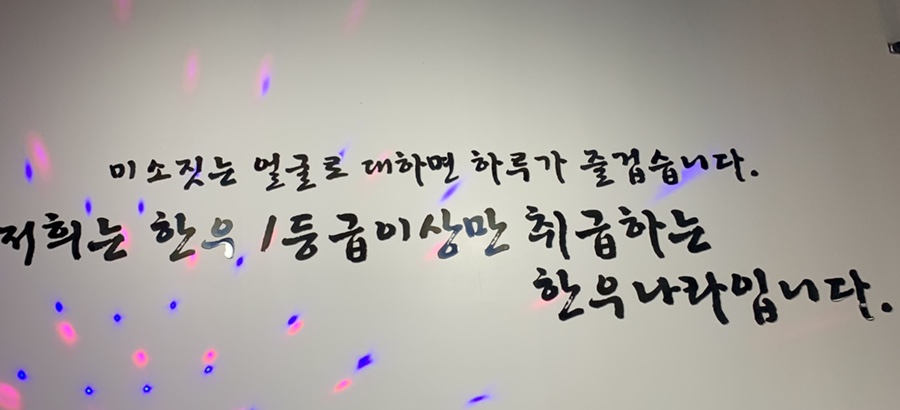 미소짓는 얼굴로 대하면 하루가 즐겁습니다.
저희는 한우 1등급이상만 취급하는
한우나라입니다.